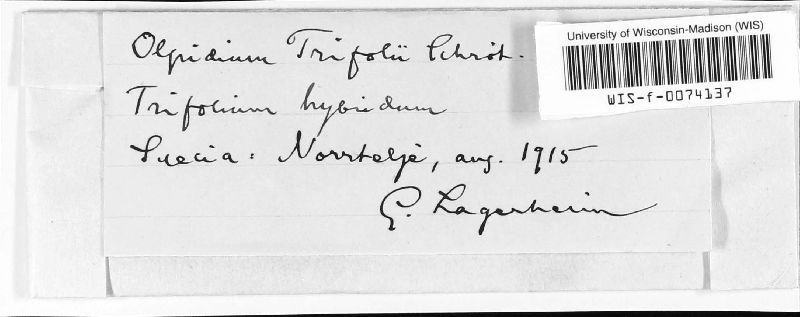 Olpidium Trifolii Schröt.
Trifolium hybridum
Suecia: Norrtelje, aug. 1915
G. Lagerheim
University of Wisconsin-Madison (WIS)
WIS-f-0074137